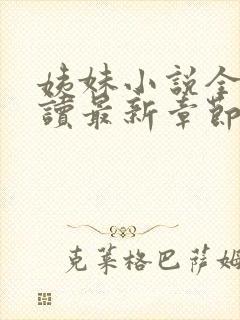 姊妹小說全
讀最新章節
克萊格巴薩姆